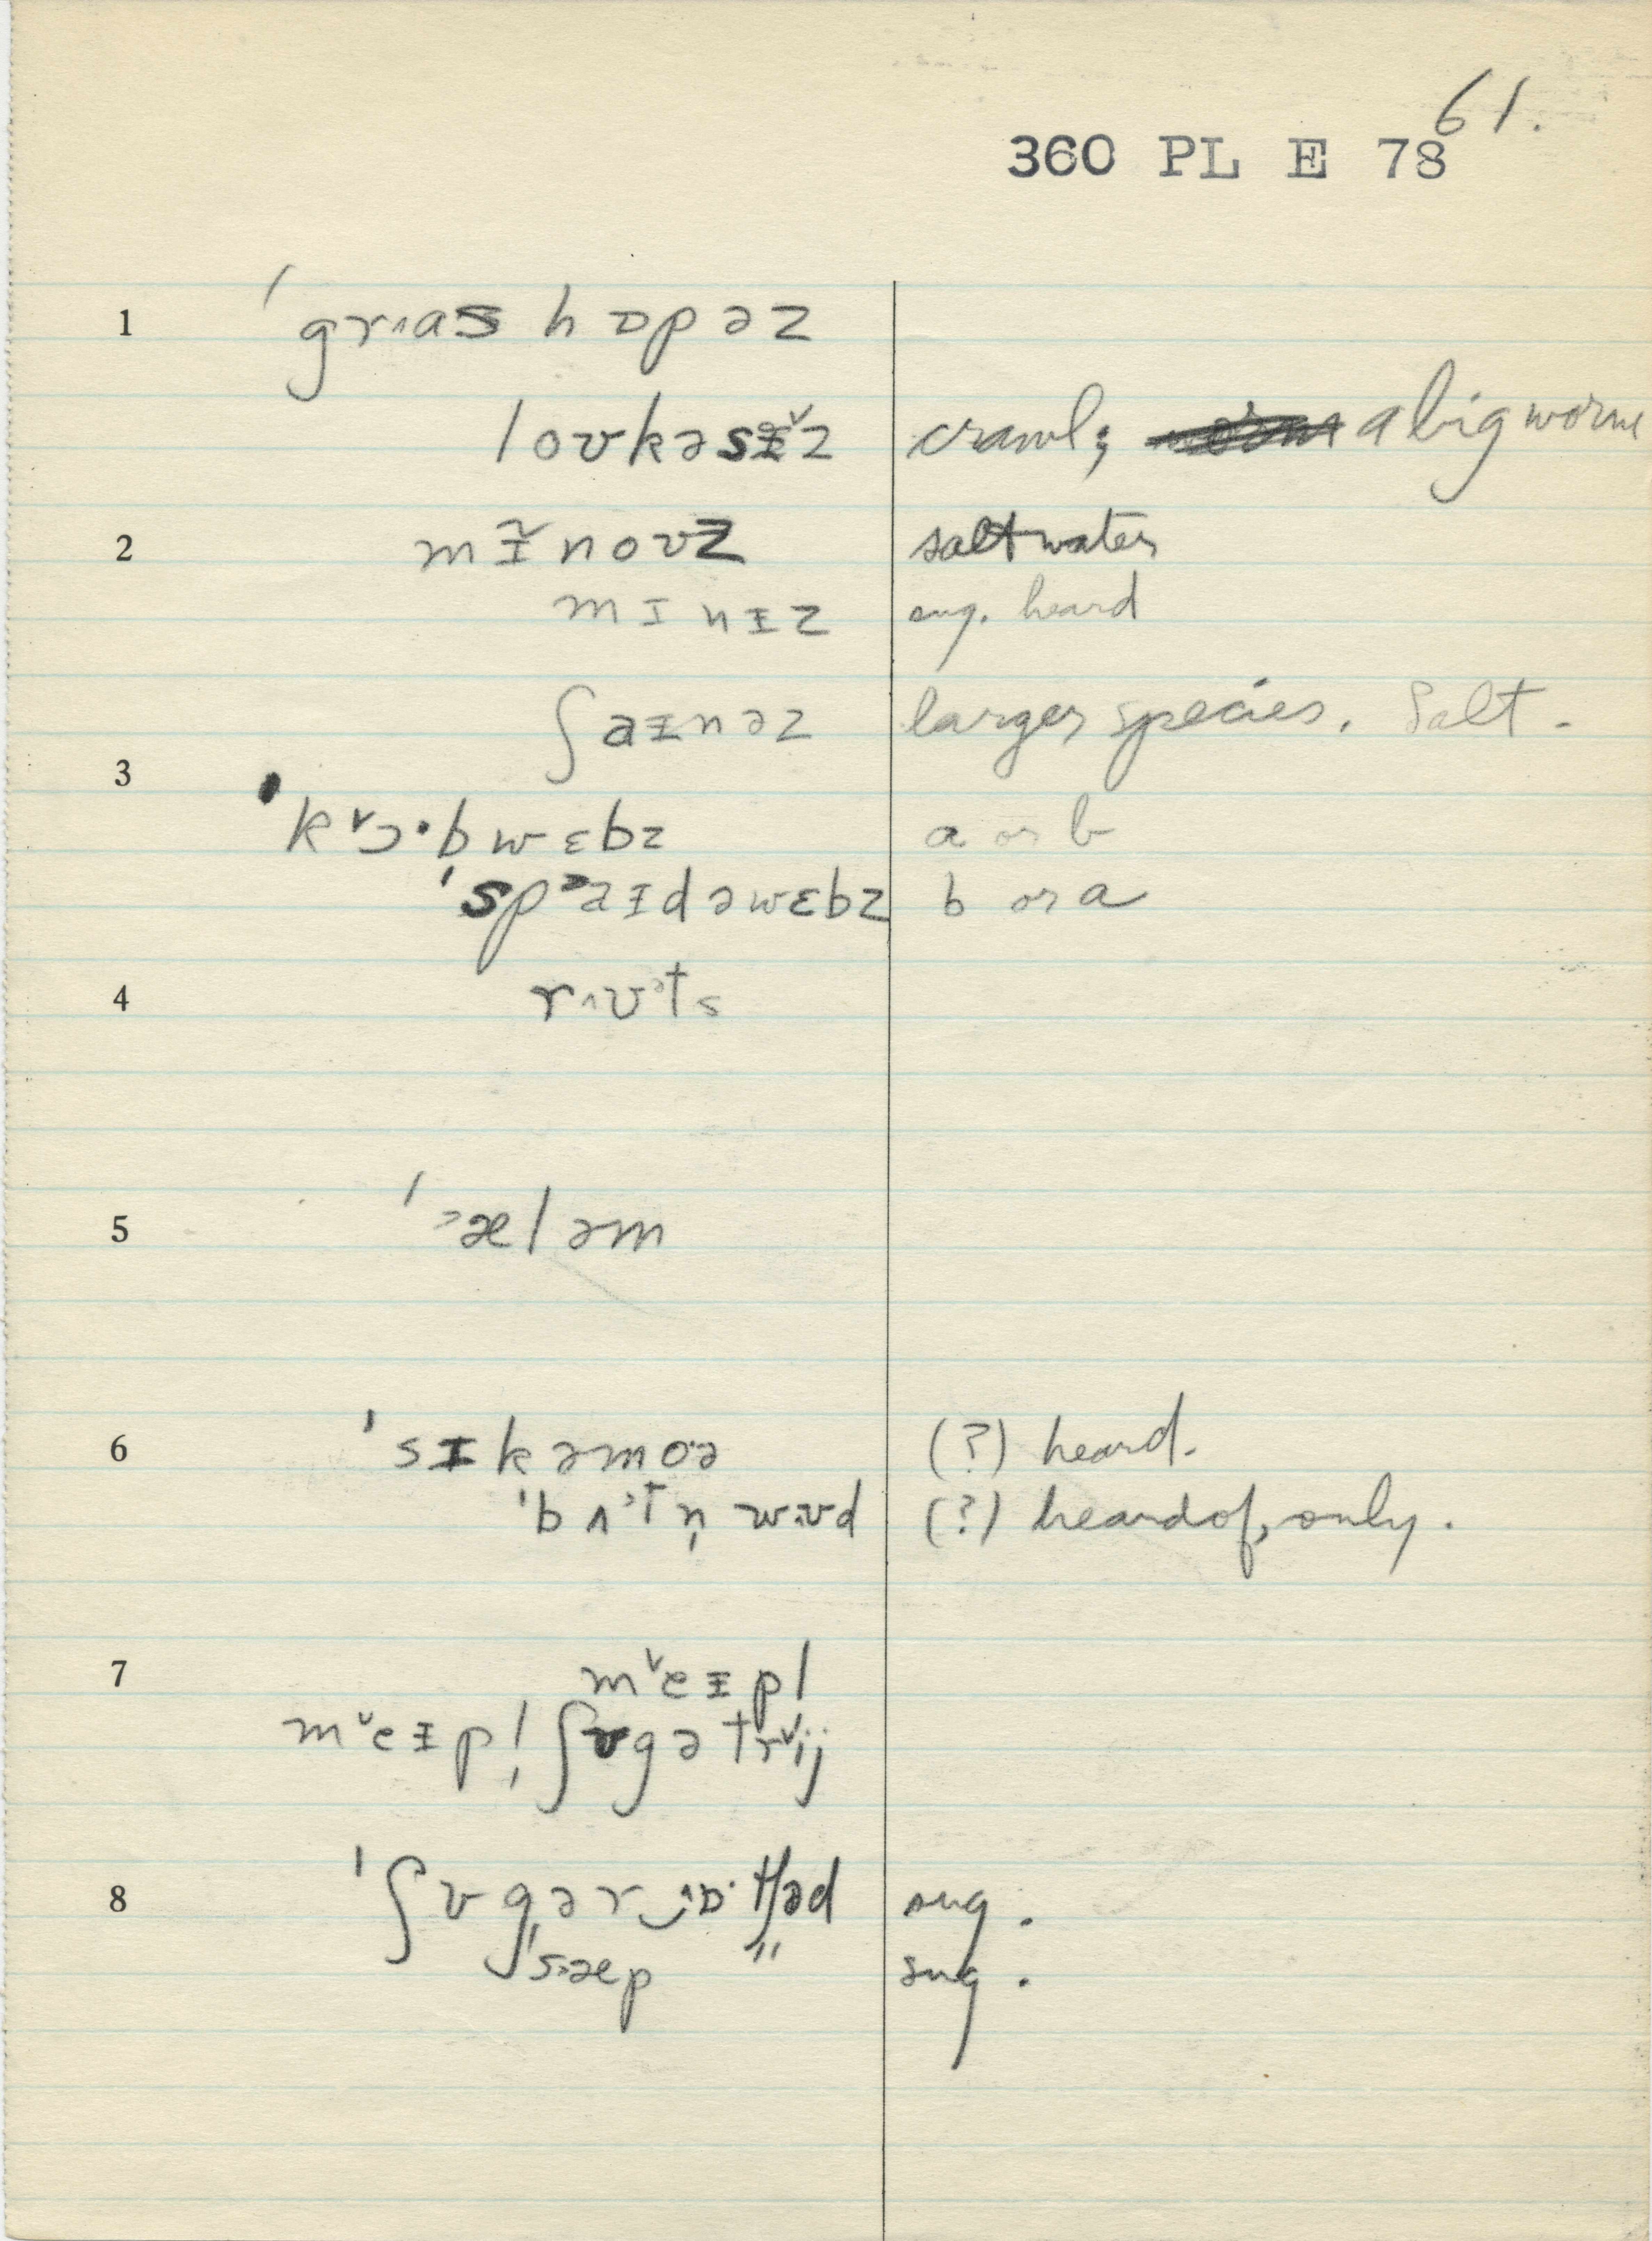 61.
360 PL E 78
1 ˈgr^as hɒpəz
loʊkəsɪ̵̌z crawl; a big worm
2 mɪ̵̌noʊz salt water
mɪnɪ̵z sug. heard
ʃaɪ̵nəz larger species. Salt.
3
ˈk˅ɔ·bwɛbz a or b
ˈsp˃aɪ̵dəwɛbz b or a
4 r^ʊ˒ts
5 ˈ˃æləm
6 ˈsɪ̵kəmoə (?) heard.
ˈbʌ˒tn̩ wʊd (?) heard of, only.
7 m˅eɪ̵pl
m˅eɪ̵pl̩ ʃʊgə tr˅ij
8 ˈʃʊgər ɒ·tʃəd sug.
ˈs˃æp " sug.